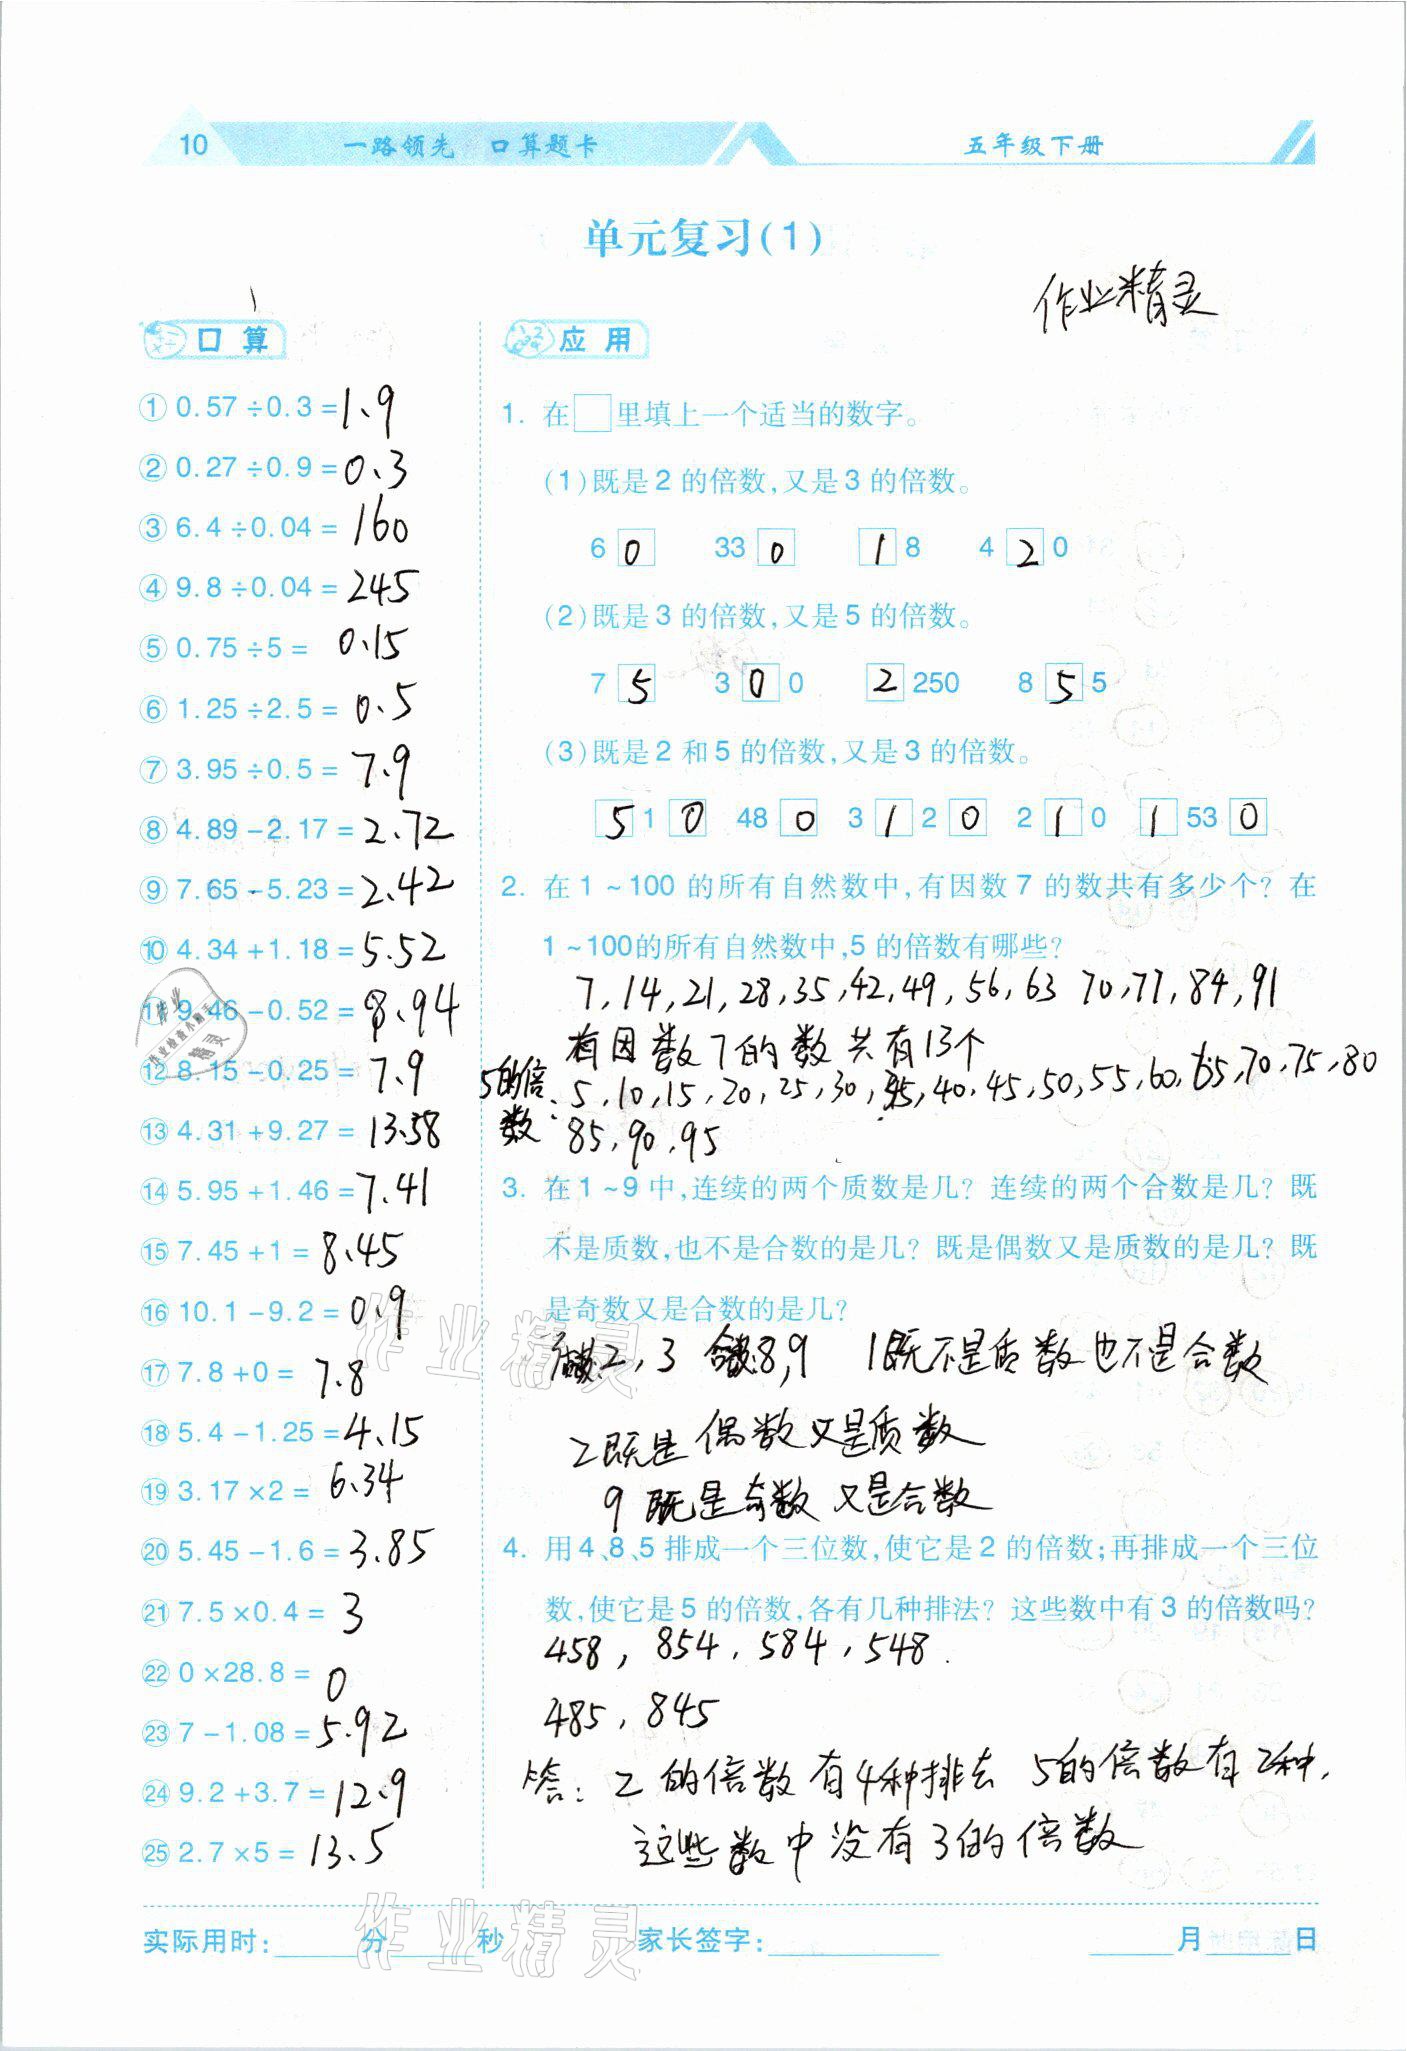 10 一路领先 口算题卡 五年级下册
单元复习(1)
作业精灵
口算
① 0.57÷0.3=1.9
② 0.27÷0.9=0.3
③ 6.4÷0.04=160
④ 9.8÷0.04=245
⑤ 0.75÷5=0.15
⑥ 1.25÷2.5=0.5
⑦ 3.95÷0.5=7.9
⑧ 4.89-2.17=2.72
⑨ 7.65-5.23=2.42
⑩ 4.34+1.18=5.52
⑪ 9.46-0.52=8.94
⑫ 8.15-0.25=7.9
⑬ 4.31+9.27=13.58
⑭ 5.95+1.46=7.41
⑮ 7.45+1=8.45
⑯ 10.1-9.2=0.9
⑰ 7.8+0=7.8
⑱ 5.4-1.25=4.15
⑲ 3.17×2=6.34
⑳ 5.45-1.6=3.85
㉑ 7.5×0.4=3
㉒ 0×28.8=0
㉓ 7-1.08=5.92
㉔ 9.2+3.7=12.9
㉕ 2.7×5=13.5
应用
1. 在□里填上一个适当的数字。
(1)既是2的倍数,又是3的倍数。
6 0 33 0 1 8 4 2 0
(2)既是3的倍数,又是5的倍数。
7 5 3 0 0 2 250 8 5 5
(3)既是2和5的倍数,又是3的倍数。
5 1 0 48 0 3 1 2 0 2 1 0 1 53 0
2. 在1~100的所有自然数中,有因数7的数共有多少个?在
1~100的所有自然数中,5的倍数有哪些?
7,14,21,28,35,42,49,56,63 70,77,84,91
有因数7的数共有13个
5的倍数: 5,10,15,20,25,30,35,40,45,50,55,60,65,70,75,80
85,90,95
3. 在1~9中,连续的两个质数是几?连续的两个合数是几?既
不是质数,也不是合数的是几?既是偶数又是质数的是几?既
是奇数又是合数的是几?
质数:2,3 合数:8,9 1既不是质数也不是合数
2既是偶数又是质数
9既是奇数又是合数
4. 用4、8、5排成一个三位数,使它是2的倍数;再排成一个三位
数,使它是5的倍数,各有几种排法?这些数中有3的倍数吗?
458,854,584,548
485,845
答:2的倍数有4种排法 5的倍数有2种,
这些数中没有3的倍数
作业精灵
作业检查小助手
作业精灵
作业精灵
实际用时:____分____秒 家长签字:____ ____月____日